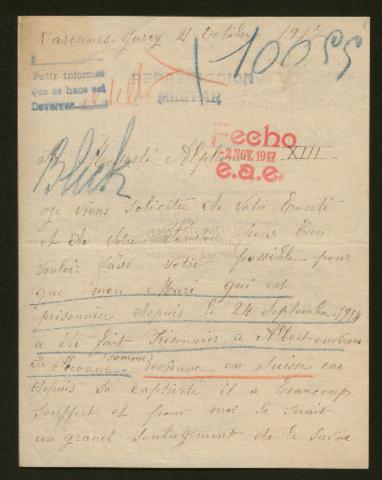 Varennes-Jarcy 4 Octobre 1917
10055
Pedir informes
Que se hace así
Devolver
REPATRIACION
MILITAR
Fecho
-2 NOV. 1917
e.a.e.
A Majesté Alphonse XIII
Je viens soliciter de votre Bonté
et de votre bien
vouloir faire votre possible pour
que mon Mari qui est
prisonnier depuis le 24 Septembre 1914
a été fait Prisonnier a Albert environ
de Peronne (somme) revienne en Suisse car
depuis sa captivité il a beaucoup
souffert et pour moi se serait
un grand soulagement de le savoir